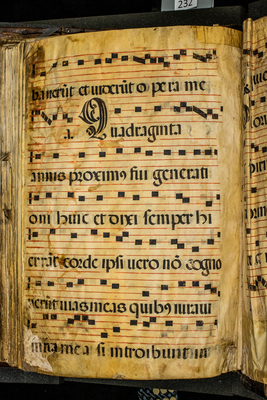 232
banerūt et viderūt opera me
a. Quadraginta
annis proximꝰ fui generati
oni huic et dixi semper hi
errāt corde ipsi vero nō cogno
verūt vias meas quibꝰ iuravi
in ira mea si introibunt in